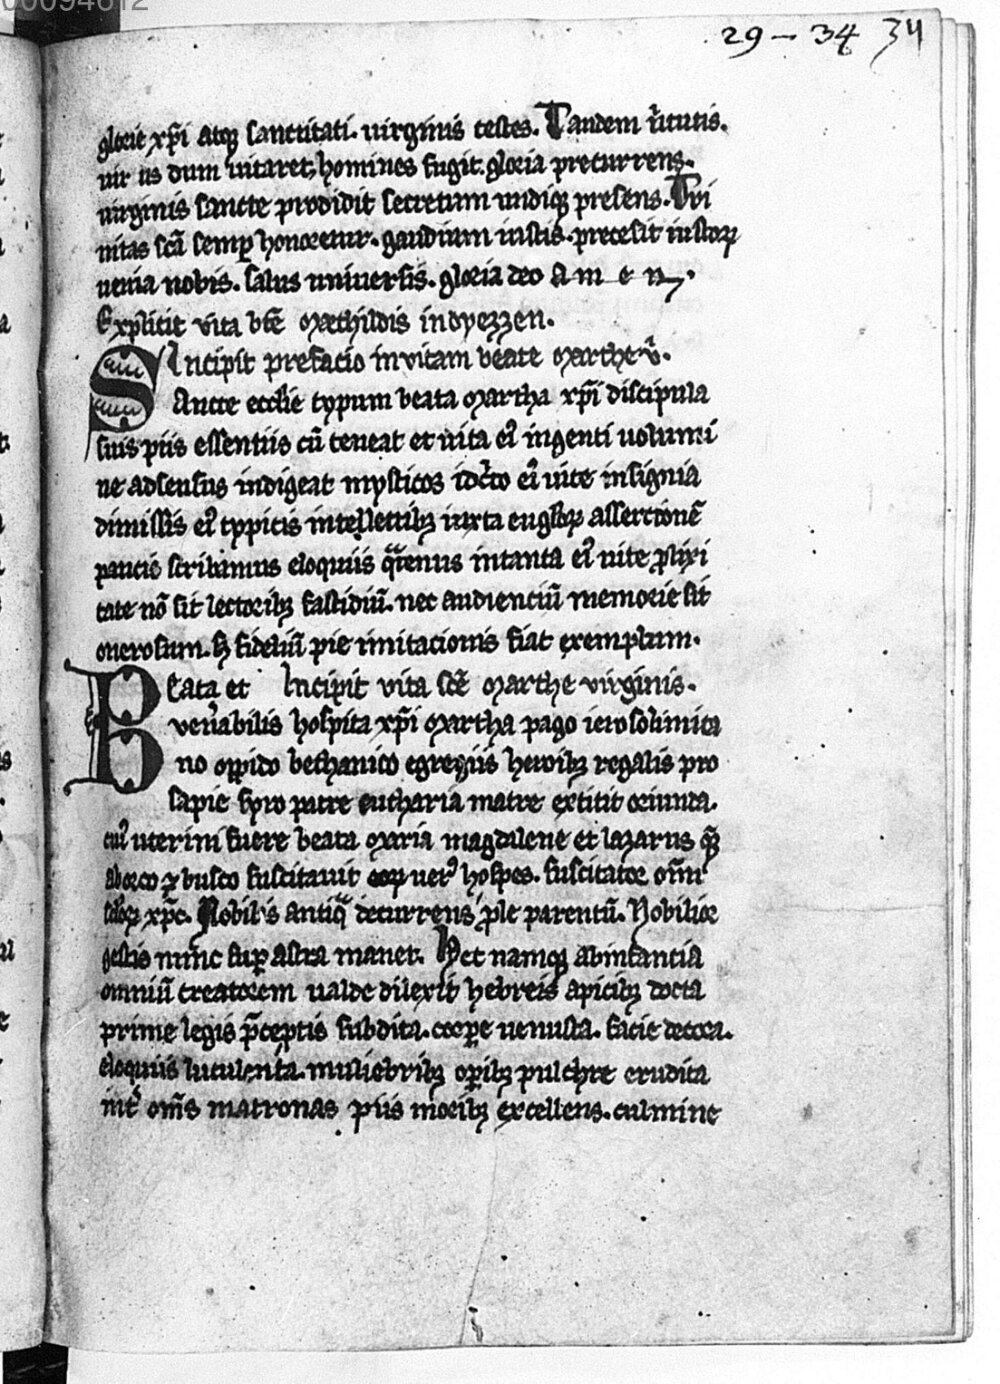 00094612
29 - 34 34
glorie xp̄i atq; sanctitati. uirginis testes. Tandem u̓tutis.
uir iis dum uitaret, homines fugit. gloria precurrens.
uirginis sancte prodidit secretum undiq; presens. Tri
nitas scā semp̱ honoretur. gaudium iustis. precesit iustoꝝ
uenia nobis. salus uniuersis. gloria deo a m e n.
Explicit vita btē Mathildis in dyezzen.
Incipit prefacio in vitam beate Marthe v̓.
Sancte ecclie typum beata Martha xp̄i discipula
suis piis essentiis cū teneat et uita ei᷒ ingenti uolumi
ne adsensus indigeat mysticos idc̓co ei᷒ uite insignia
dimissis ei᷒ typicis intellectibꝫ iuxta eug̅lioꝝ assertionē
paucis scribamus eloquiis q̅tenus in tanta ei᷒ uite ꝓlixi
tate nō sit lectoribꝫ fastidiū. nec audienciū memorie sit
onerosum. sꝫ fideliū pie imitacionis fiat exemplum.
Incipit vita scē Marthe virginis.
Beata et
ven̓abilis hospita xp̄i Martha pago ierosolimita
no oppido bethanico egregiis heroibꝫ regalis pro
sapie syro patre eucharia matre extitit oriunda.
cui᷒ uterini fuere beata Maria magdalene et lazarus
suscitauit uer᷒ hospes. suscitator om̄i
xp̄c. Nobilis antiq̄ decurrens ꝓle parentū. Nobilior
gestis nunc sup̱ astra manet. Hec namq; ab infantia
omniū creatorem ualde dilexit hebreis apicibꝫ docta
prime legis p̄ceptis subdita. corpe uenusta. facie decora.
eloquiis luculenta. muliebribꝫ op̱ibꝫ pulchre erudita
int̓ om̄s matronas piis moribꝫ excellens. culmine